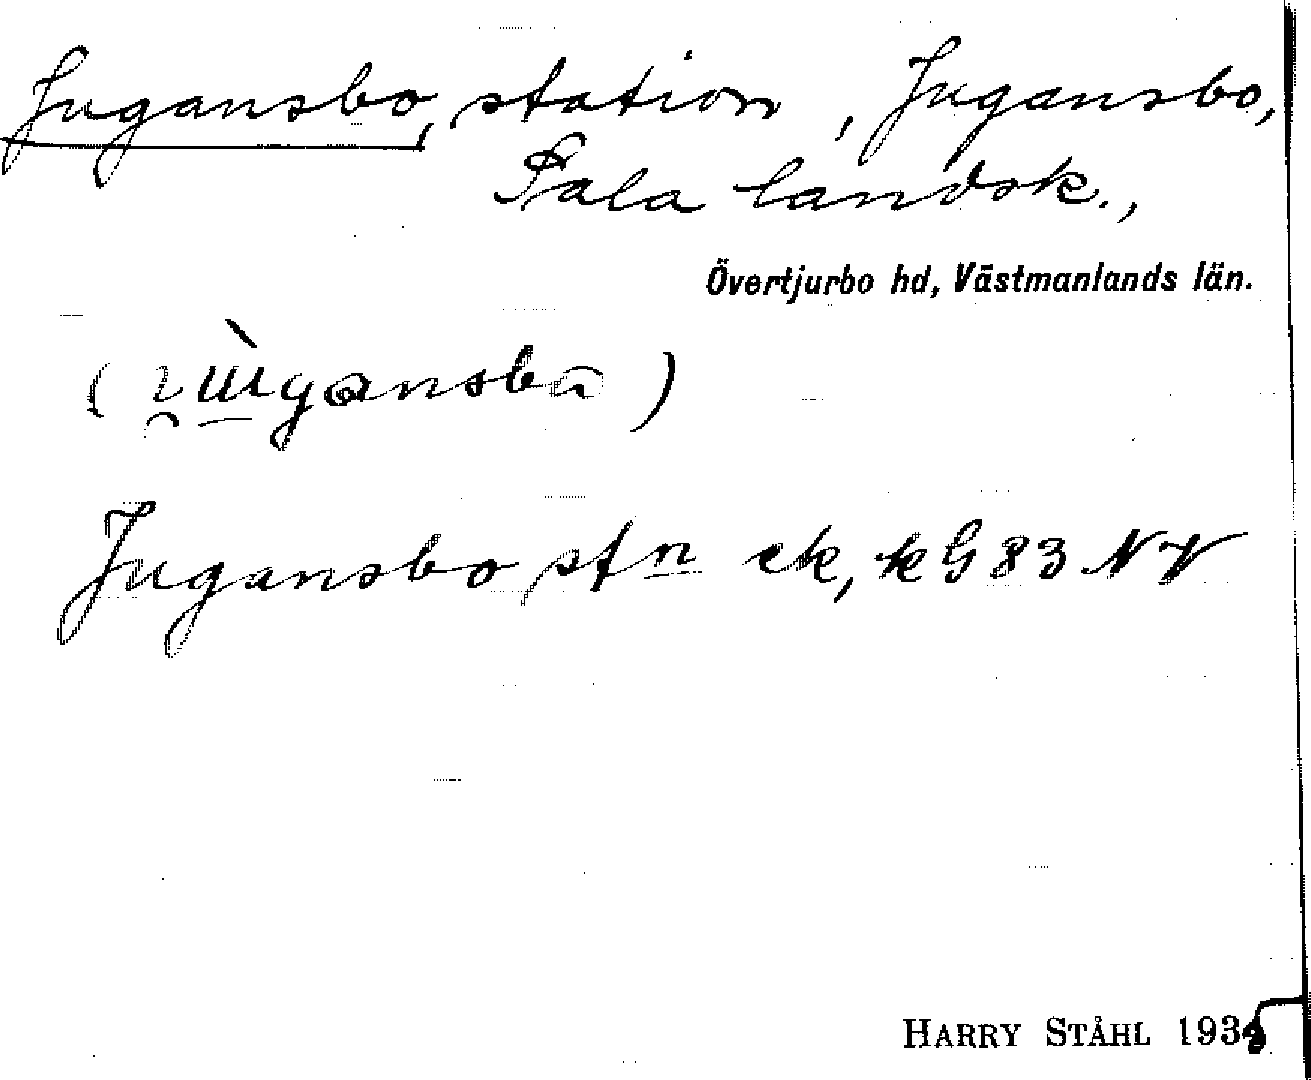 Jugansbo, station, Jugansbo,
Sala landsk.,
Övertjurbo hd, Västmanlands län.
Jugansbo stn ek, kG 83 NV
HARRY STÅHL 193